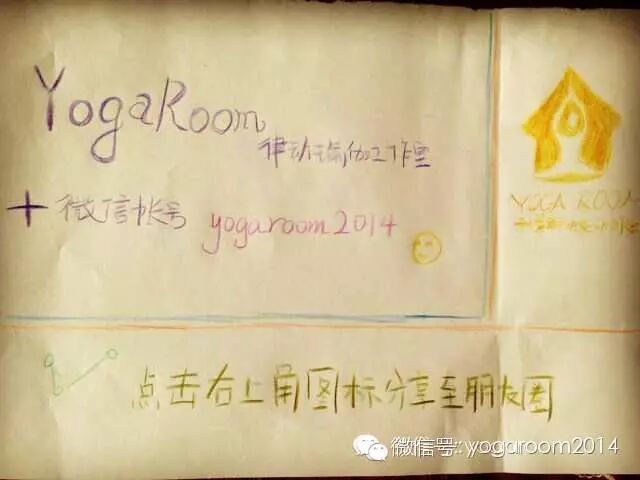 YogaRoom
律动瑜伽工作室
+ 微信帐号 yogaroom2014
YOGA ROOM
点击右上角图标分享至朋友圈
微信号: yogaroom2014